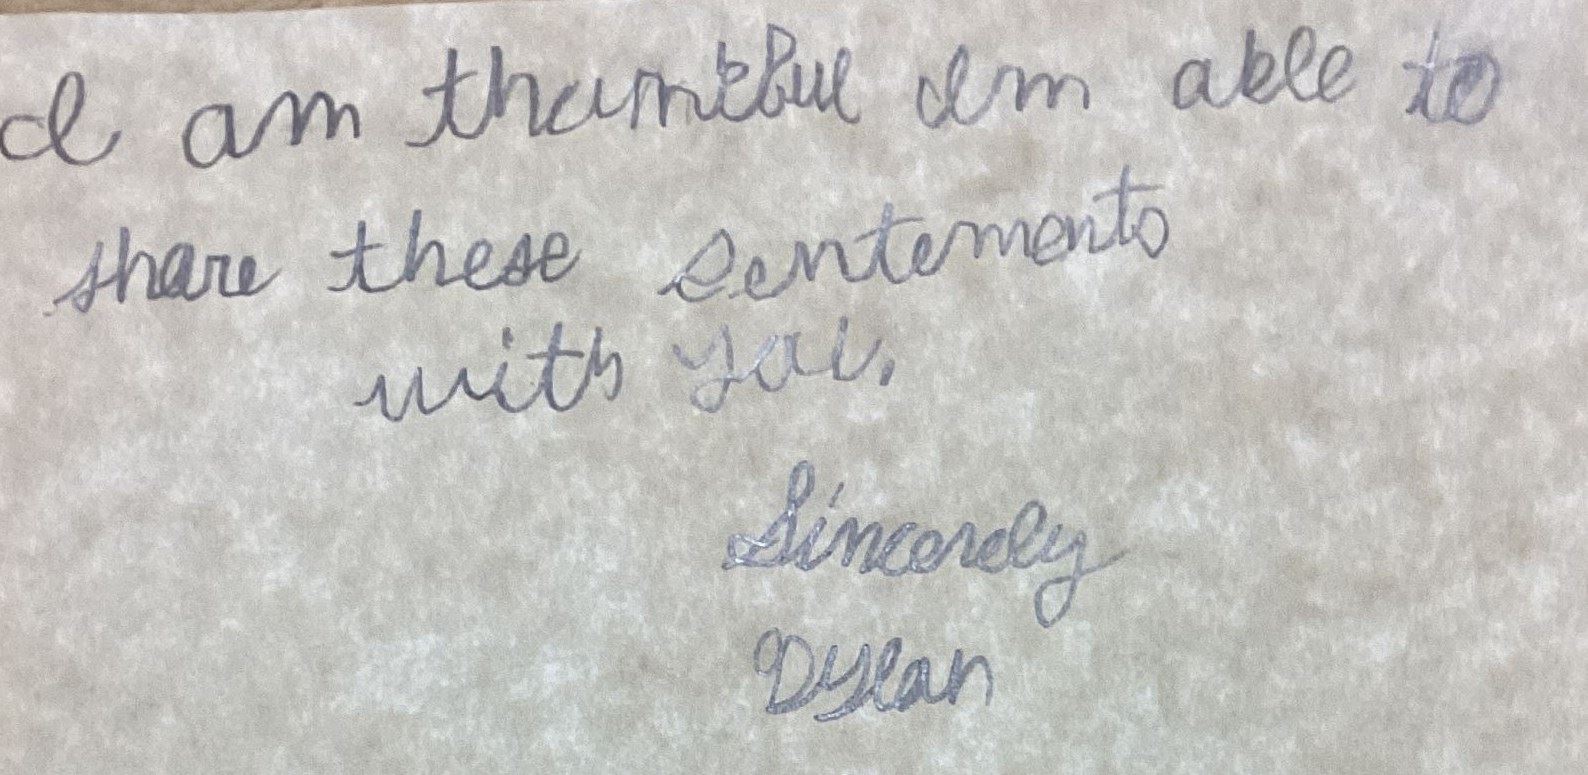 I am thankful Im able to
share these sentements
with you.
Sincerely
Dylan